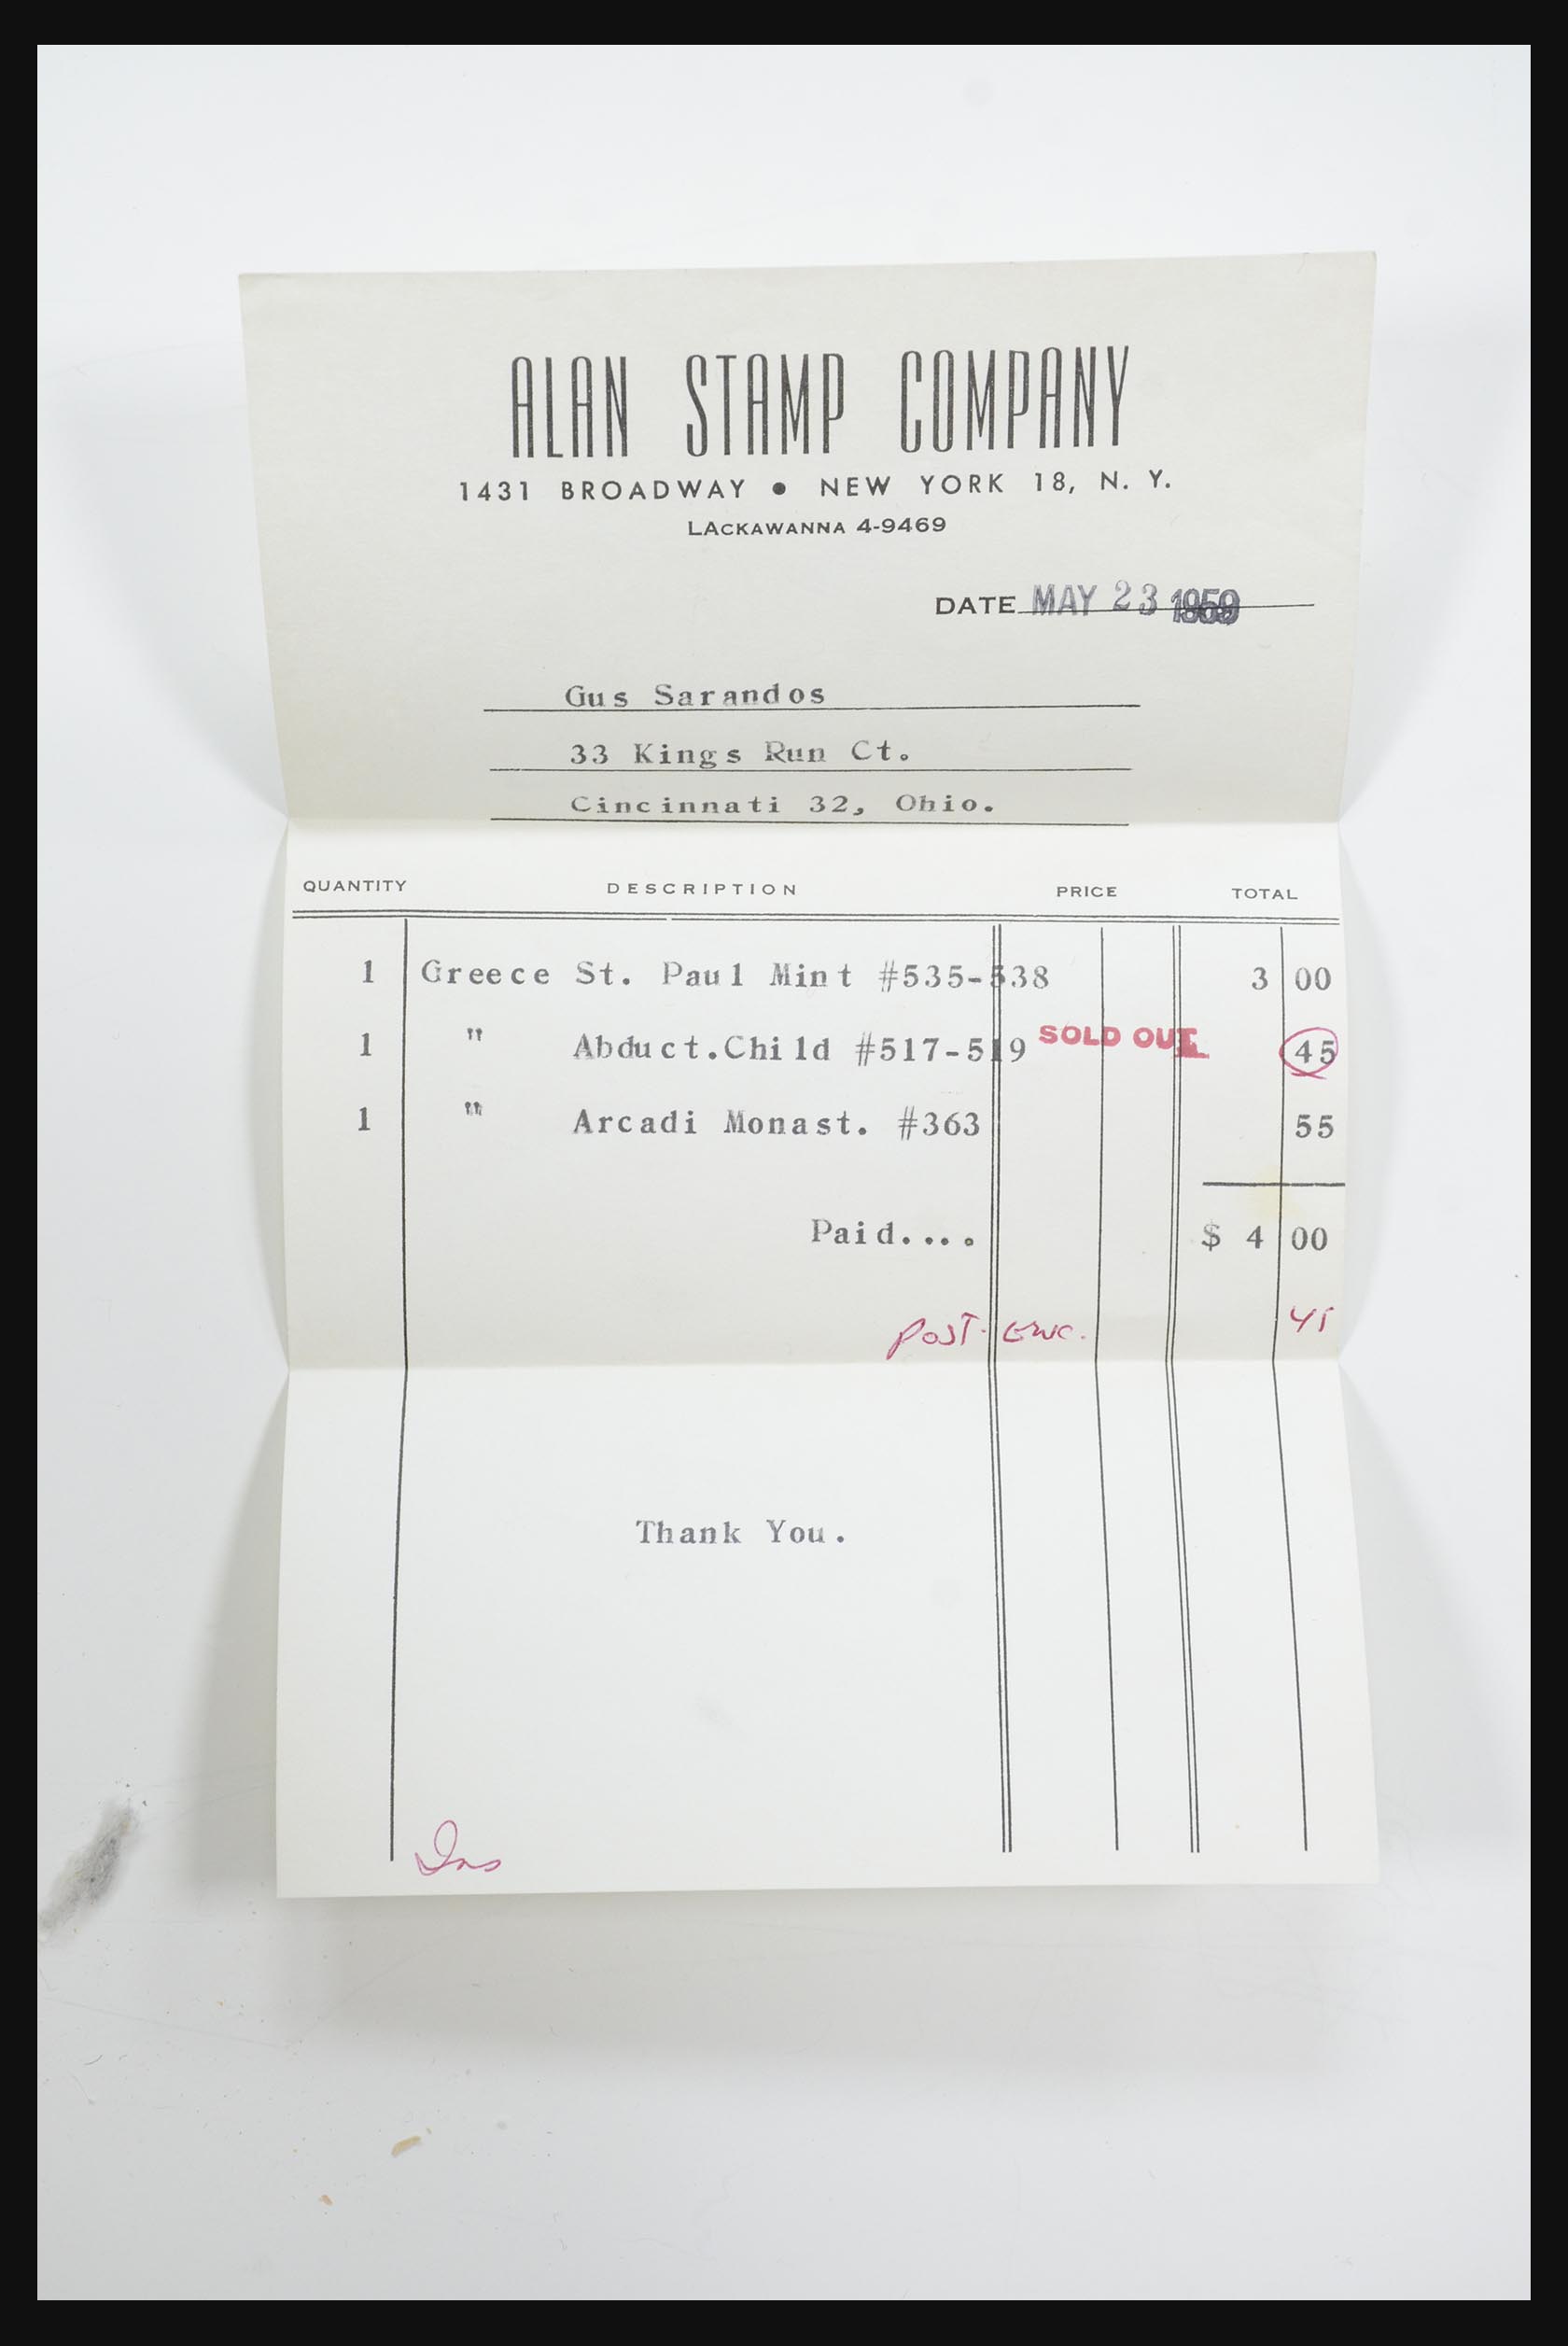 ALAN STAMP COMPANY
1431 BROADWAY • NEW YORK 18, N. Y.
LACKAWANNA 4-9469
DATE MAY 23
Gus Sarandos
33 Kings Run Ct.
Cincinnati 32, Ohio.
QUANTITY DESCRIPTION PRICE TOTAL
1 Greece St. Paul Mint #535-538 3 00
1 " Abduct.Child #517-519 SOLD OUT 45
1 " Arcadi Monast. #363 55
Paid.... $ 4 00
Post. Enc. 45
Thank You.
Ins